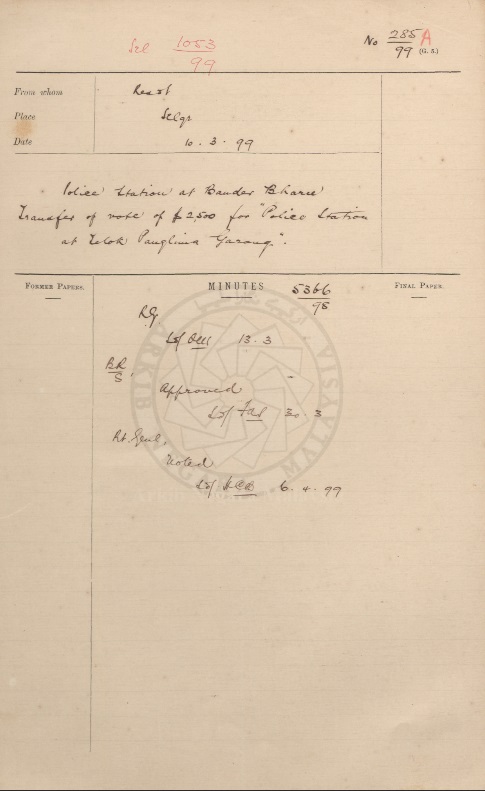 Sel 1053/99
No 285/99 A (G. S.)
From whom Resdt
Place Selgr
Date 10.3.99
Police Station at Bandar Bharu
Transfer of vote of $2500 for "Police Station
at Telok Panglima Garang".
FORMER PAPERS.
MINUTES
5366/98
FINAL PAPER.
R.G.
13.3
BR/S,
Approved
30.3
Rt. Genl,
Noted
6.4.99
ARKIB NEGARA MALAYSIA